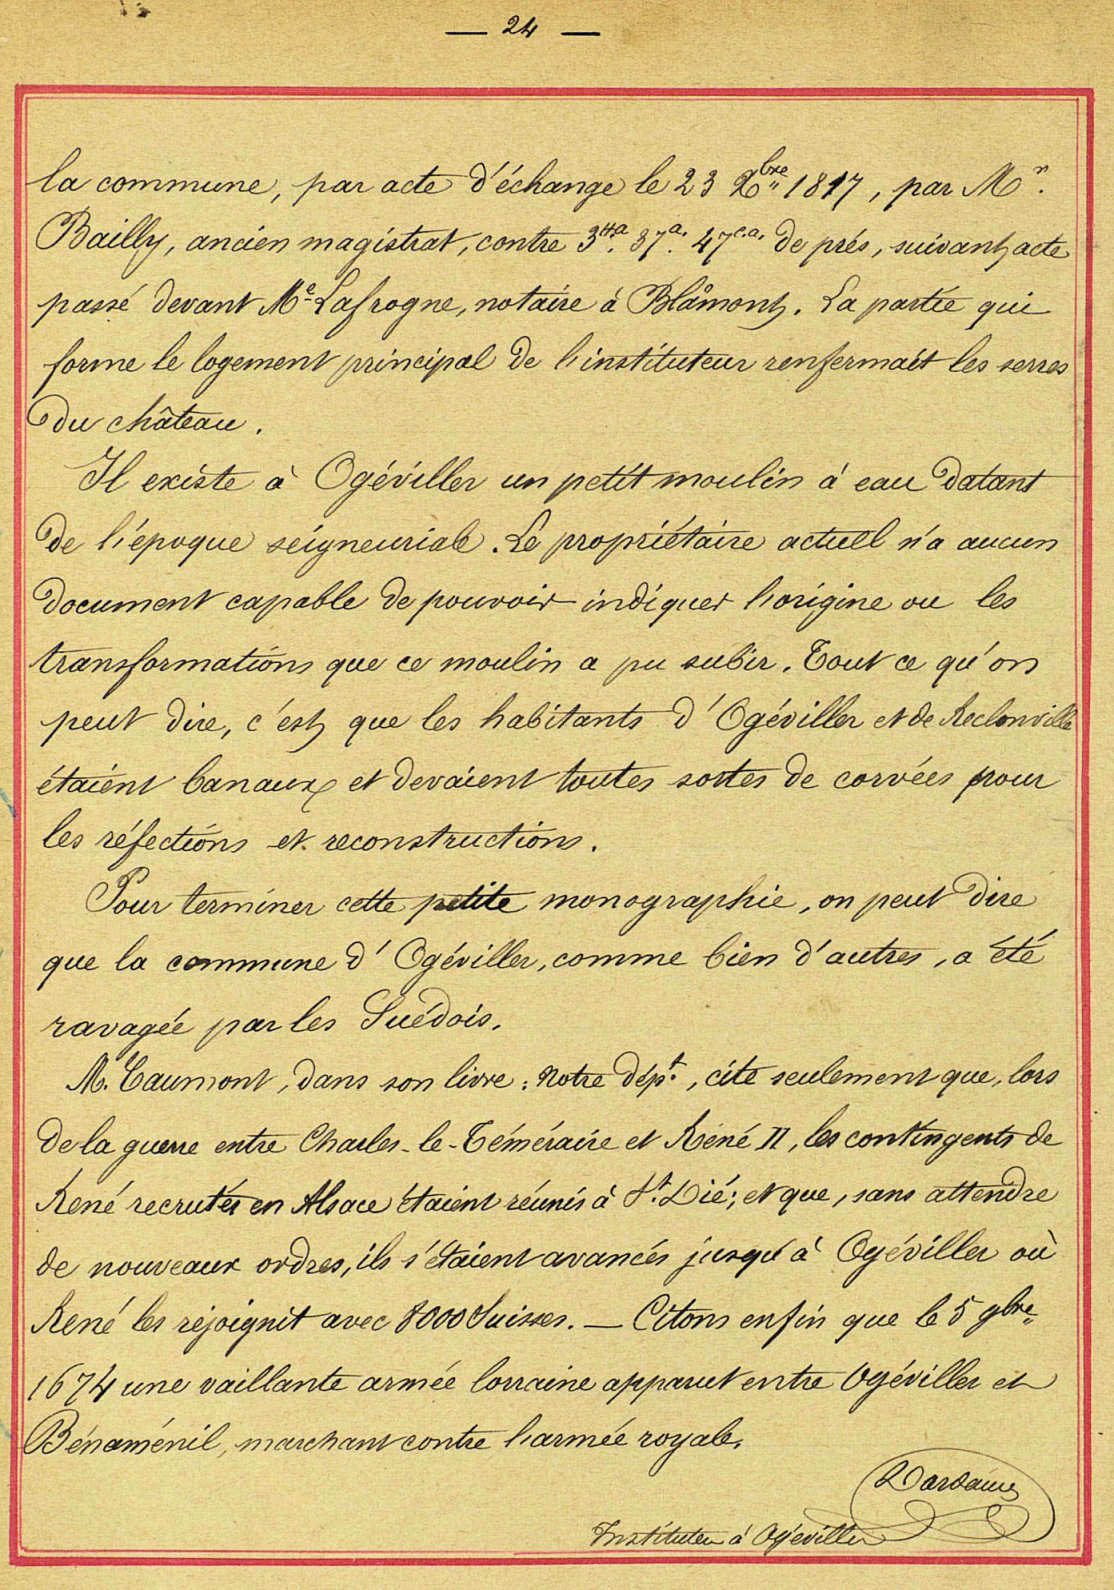 — 24 —
la commune, par acte d'échange le 23 Xbre 1817, par Mr.
Bailly, ancien magistrat, contre 3Ha. 37a. 47c.a. de prés, suivant acte
passé devant Me Lafrogne, notaire à Blâmont. La partie qui
forme le logement principal de l'instituteur renfermait les serres
du château.
Il existe à Ogéviller un petit moulin à eau datant
de l'époque seigneuriale. Le propriétaire actuel n'a aucun
document capable de pouvoir indiquer l'origine ou les
transformations que ce moulin a pu subir. Tout ce qu'on
peut dire, c'est que les habitants d'Ogéviller et de Reclonville
étaient banaux et devaient toutes sortes de corvées pour
les réfections et reconstructions.
Pour terminer cette petite monographie, on peut dire
que la commune d'Ogéviller, comme bien d'autres, a été
ravagée par les Suédois.
M. Caumont, dans son livre : Notre dépt., cite seulement que, lors
de la guerre entre Charles-le-Téméraire et René II, les contingents de
René recrutés en Alsace étaient réunis à St. Dié; et que, sans attendre
de nouveaux ordres, ils s'étaient avancés jusqu'à Ogéviller où
René les rejoignit avec 8000 Suisses. — Citons enfin que le 5 9bre
1674 une vaillante armée lorraine apparut entre Ogéviller et
Bénaménil, marchant contre l'armée royale.
Dardaine
Instituteur à Ogéviller